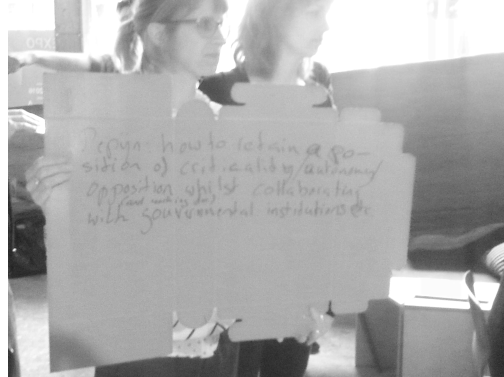 Pepyn: how to retain a po-
sition of criticality/autonomy/
opposition whilst collaborating
(and working for)
with gouvernmental institutions etc